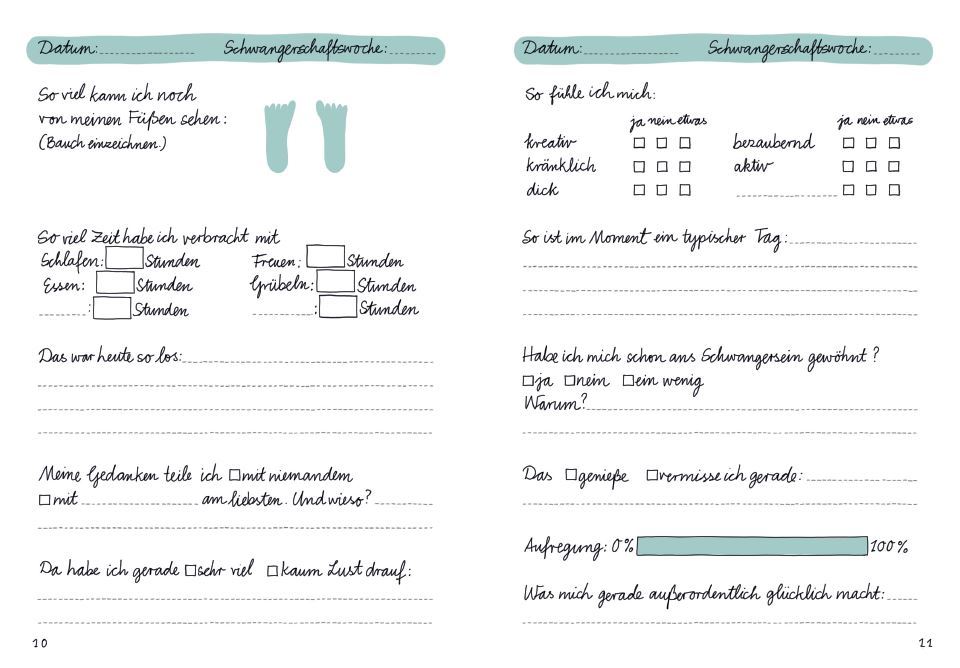 Datum: Schwangerschaftswoche:
So viel kann ich noch
von meinen Füßen sehen:
(Bauch einzeichnen.)
So viel Zeit habe ich verbracht mit
Schlafen: Stunden Freuen: Stunden
Essen: Stunden Grübeln: Stunden
: Stunden : Stunden
Das war heute so los:
Meine Gedanken teile ich mit niemandem
mit am liebsten. Und wieso?
Da habe ich gerade sehr viel kaum Lust drauf:
10
Datum: Schwangerschaftswoche:
So fühle ich mich:
ja nein etwas ja nein etwas
kreativ bezaubernd
kränklich aktiv
dick
So ist im Moment ein typischer Tag:
Habe ich mich schon ans Schwangersein gewöhnt?
ja nein ein wenig
Warum?
Das genieße vermisse ich gerade:
Aufregung: 0% 100%
Was mich gerade außerordentlich glücklich macht:
11